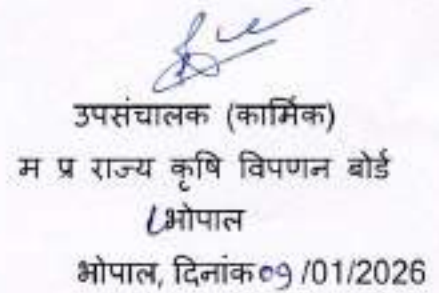 उपसंचालक (कार्मिक)
म प्र राज्य कृषि विपणन बोर्ड
भोपाल
भोपाल, दिनांक 09 /01/2026